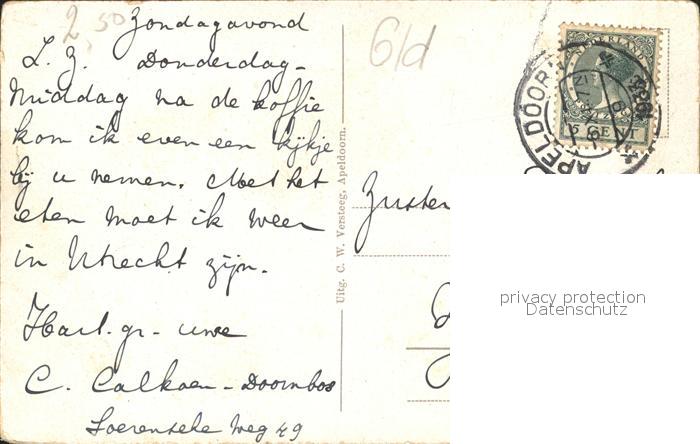 2,50
Zondagavond
L. Z. Donderdag-
middag na de koffie
kom ik even een kijkje
bij u nemen. Met het
eten moet ik weer
in Utrecht zijn.
Hart. gr. uwe
C. Calkoen-Doornbos
Soerensche Weg 49
Uitg. C. W. Versteeg, Apeldoorn.
6/d
NEDERLAND
CENT
APELDOORN
Zuster
privacy protection
Datenschutz